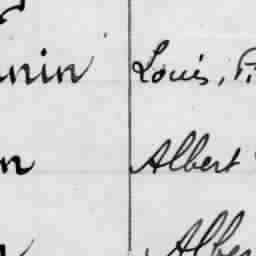 nin Louis,
n Albert
Alber